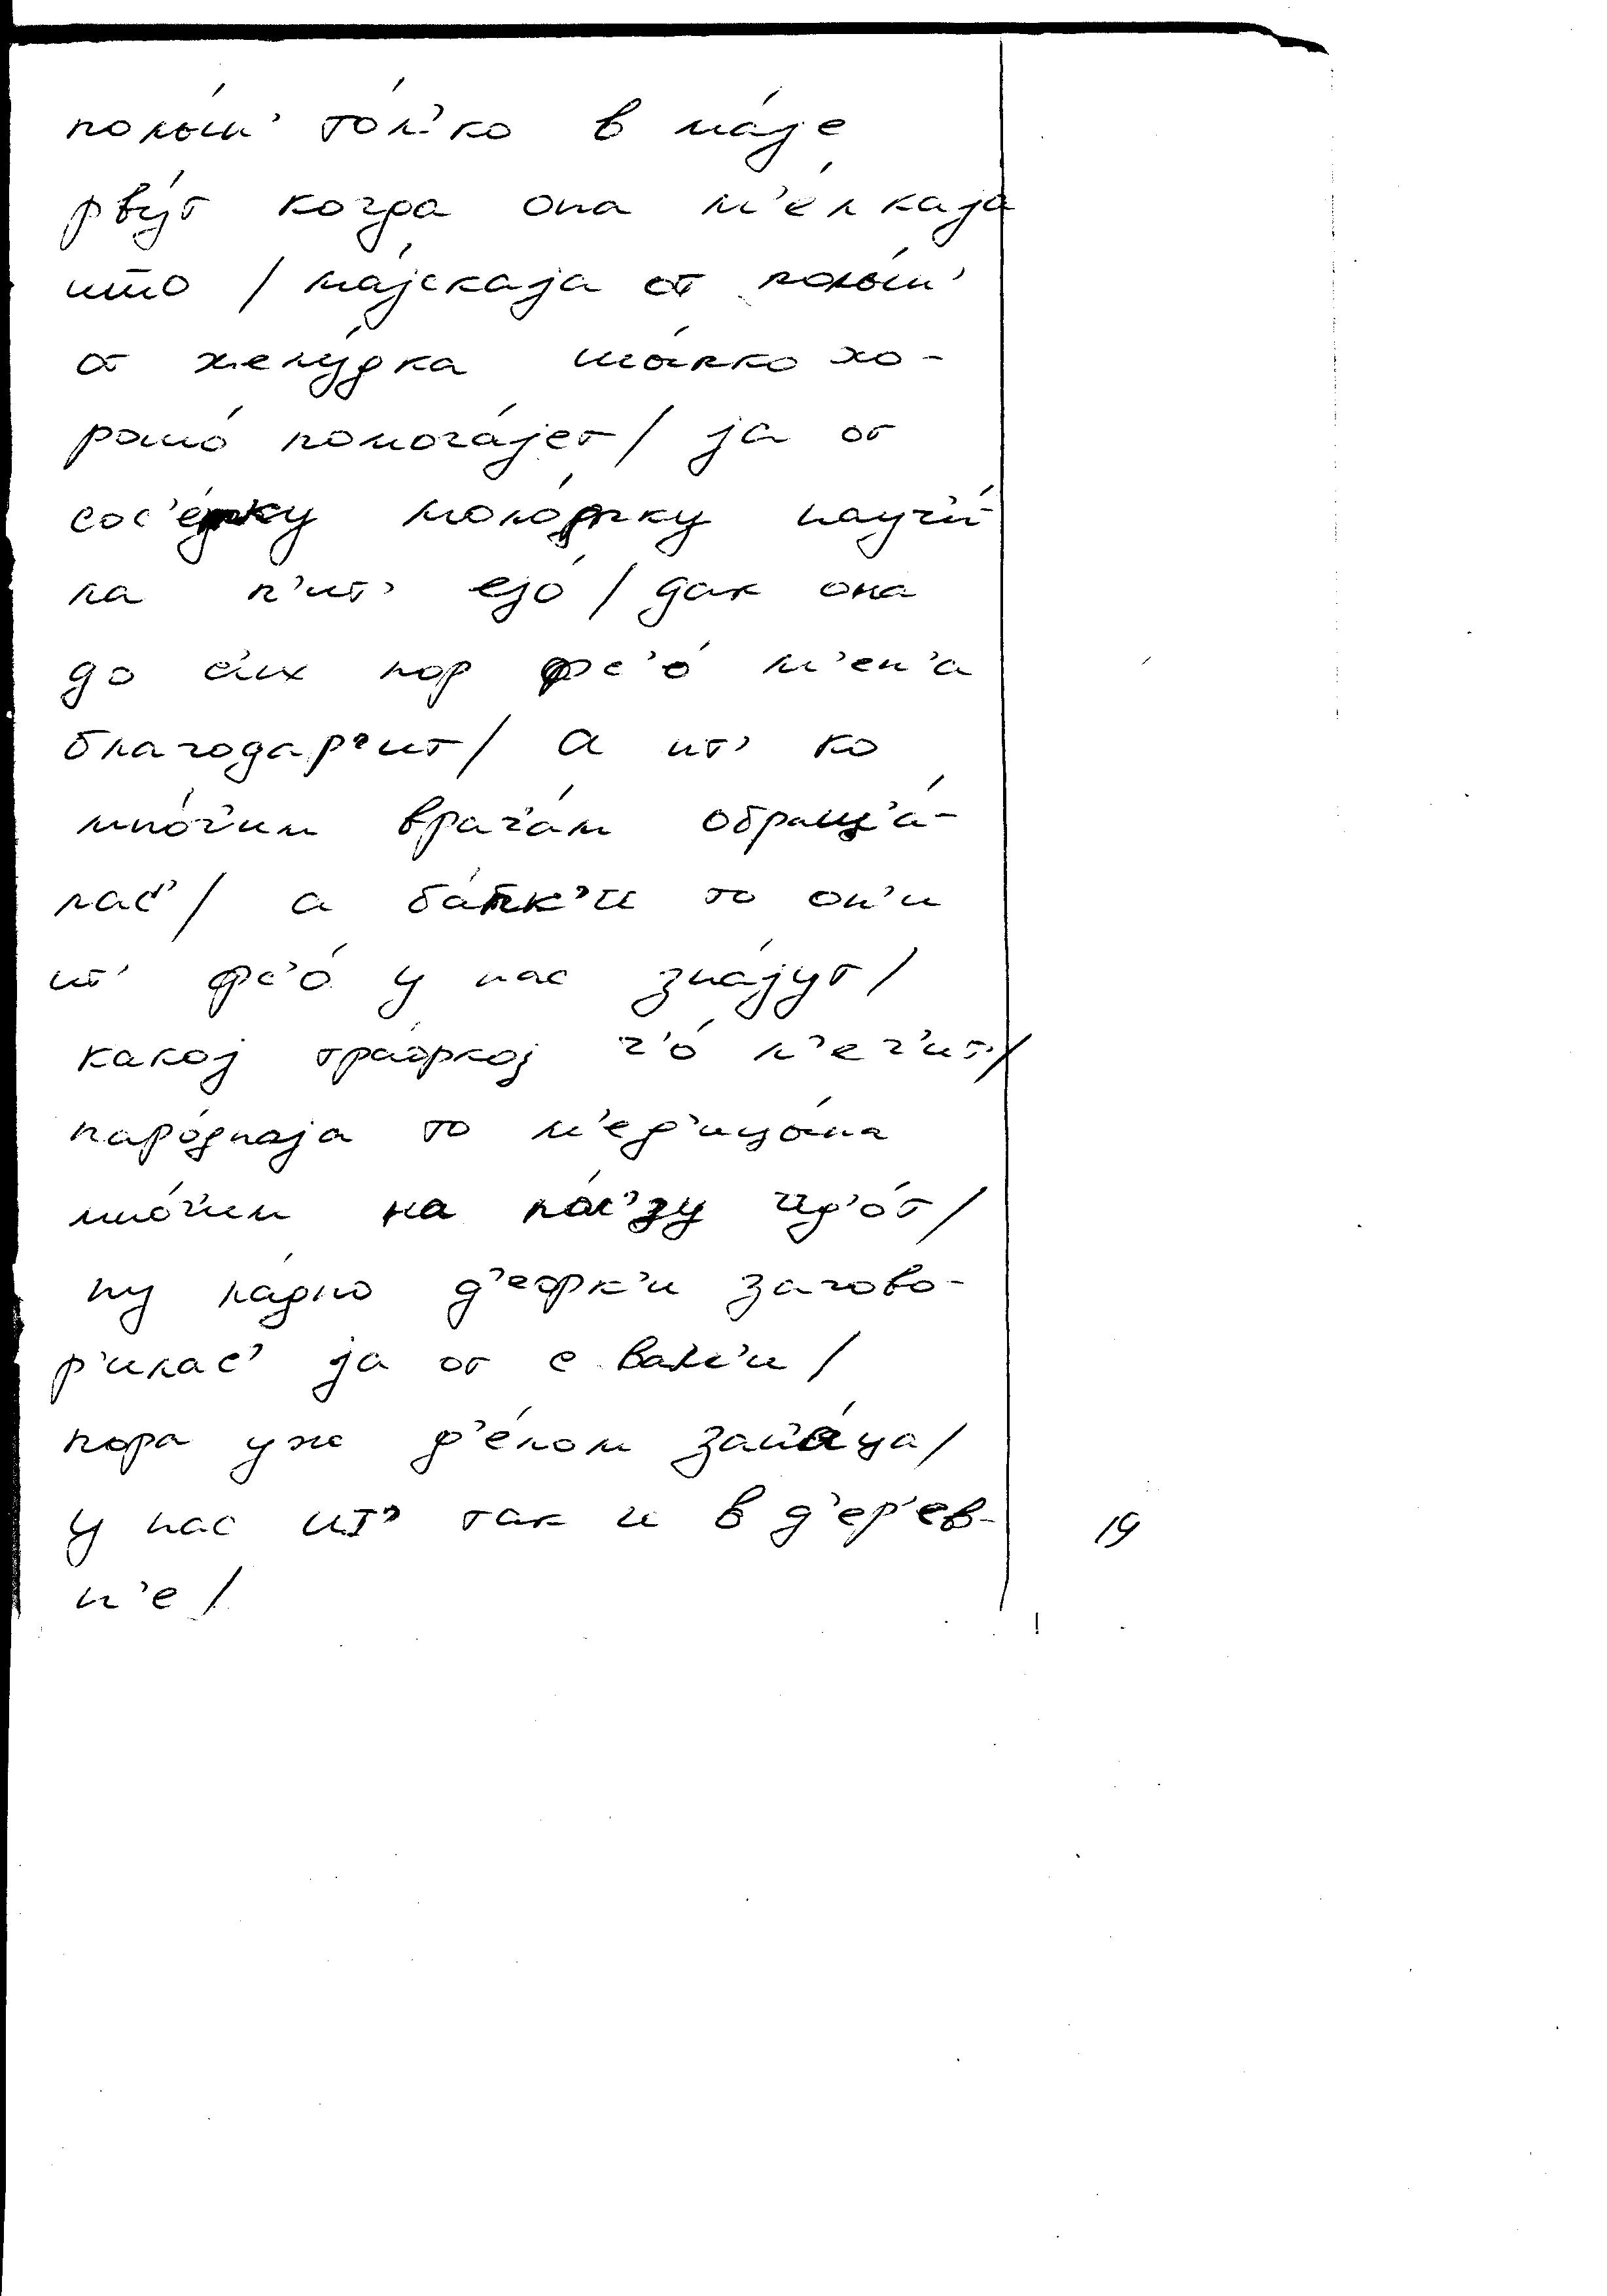 полы́н' то́л'ко в ма́је
рву́т когда она м'е́лкаја
што / ма́јскаја от полы́н'
от желу́дка шы́пко хо-
рошо́ помога́јет / ја от
сос'е́тку моло́тку научи́
ла п'ит' ејо́ / дак она
до с'их пор фс'о́ м'ен'а
благодар'ит / а ит' ко
мно́г'им врач'а́м обращ'а́-
лас' / а ба́пк'и то он'и
ит' фс'о́ у нас зна́јут /
какој тра́фкој ч'о́ л'еч'ит' /
наро́днаја то м'ед'ицы́на
мно́г'им на по́л'зу ид'о́т /
ну ла́дно д'ефк'и загово-
р'илас' ја от с вам'и /
пора уж д'е́лом зан'а́ца /
у нас ит' так и в д'ер'ев-
н'е /
19